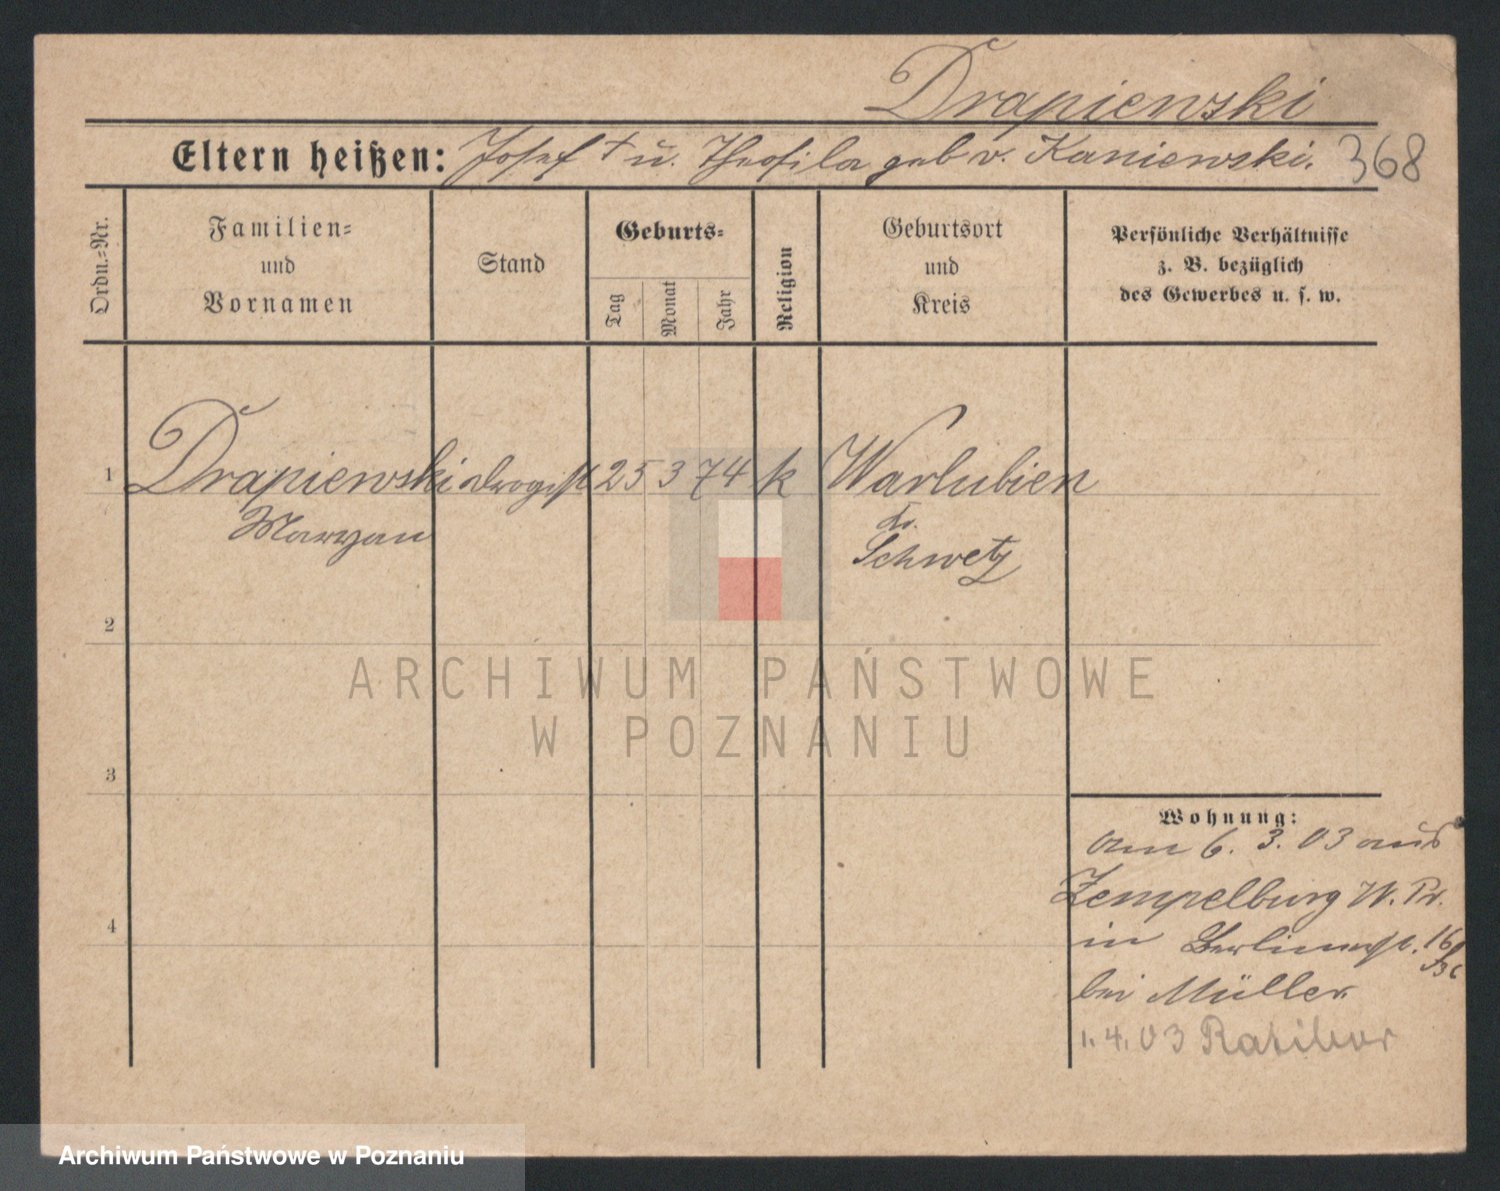 Drapiewski
Eltern heißen: Josef † u. Theofila geb v. Kaniewski. 368
Ordn.-Nr.
Familien-
und
Vornamen
Stand
Geburts-
Tag
Monat
Jahr
Religion
Geburtsort
und
Kreis
Persönliche Verhältnisse
z. B. bezüglich
des Gewerbes u. s. w.
1 Drapiewski drogist 25 3 74 k Warlubien
Maryan Kr.
Schwetz
2
3
4
Wohnung:
am 6. 3. 03 aus
Zempelburg W. Pr.
in Berlinerst. 16
bei Müller
1. 4. 03 Ratibor
ARCHIWUM PAŃSTWOWE
W POZNANIU
Archiwum Państwowe w Poznaniu